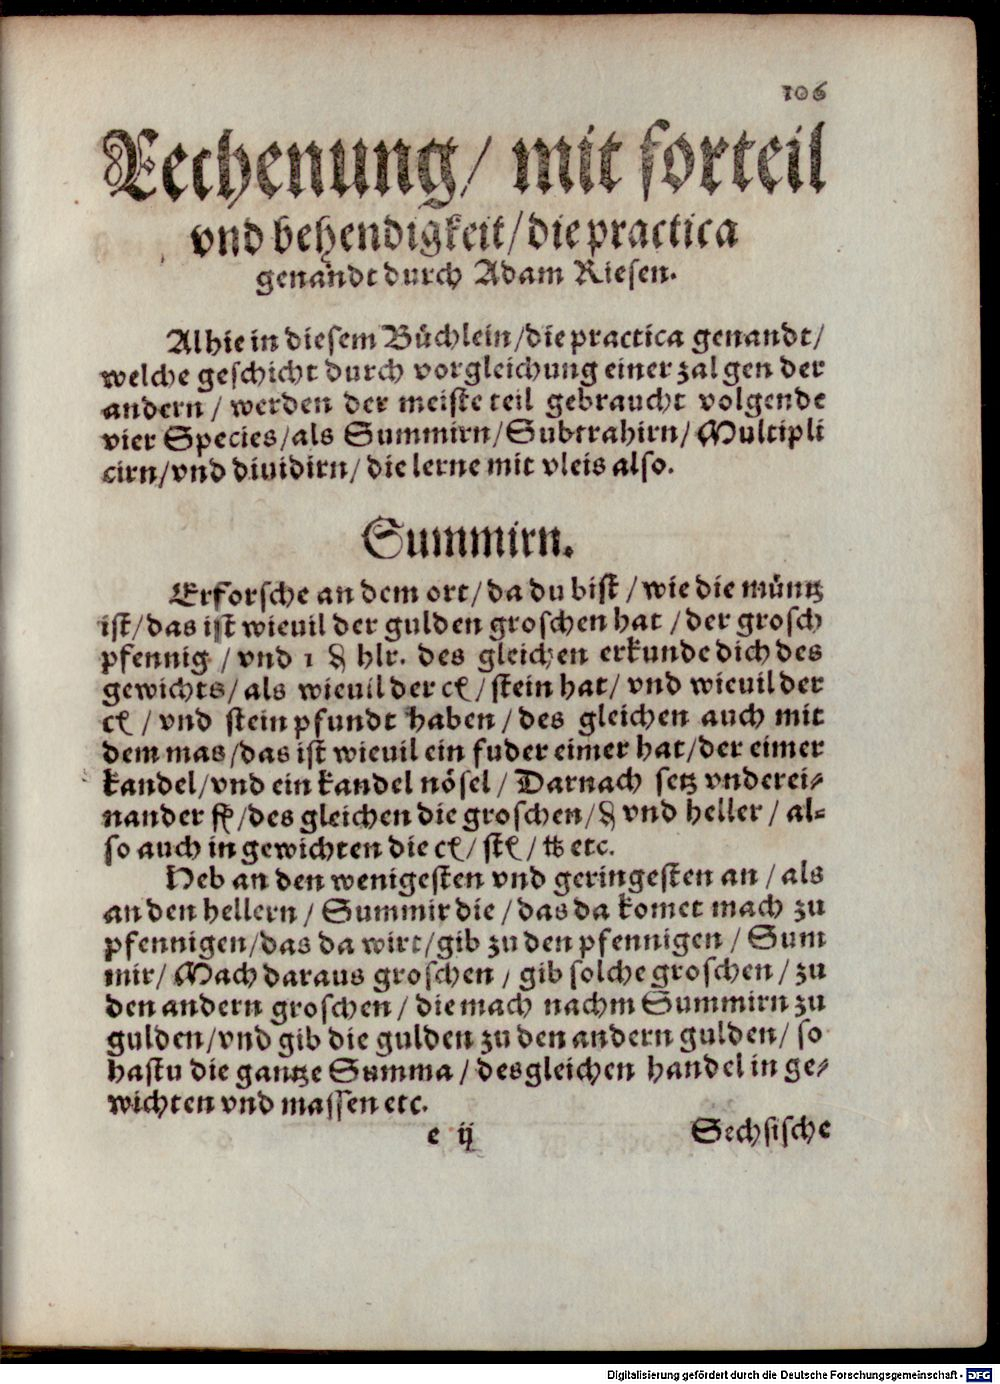 106
Rechenung/ mit forteil
vnd behendigkeit/die practica
genandt durch Adam Riesen.
Alhie in diesem Büchlein/die practica genandt/
welche geschicht durch vorgleichung einer zal gen der
andern/ werden der meiste teil gebraucht volgende
vier Species/als Summirn/Subtrahirn/Multipli
cirn/vnd diuidirn/ die lerne mit vleis also.
Summirn.
Erforsche an dem ort/da du bist/wie die müntz
ist/das ist wieuil der gulden groschen hat/der grosch
pfennig/vnd 1 ₰ hlr. des gleichen erkunde dich des
gewichts/als wieuil der ct/stein hat/vnd wieuil der
ct/vnd stein pfundt haben/des gleichen auch mit
dem mas/das ist wieuil ein fuder eimer hat/der eimer
kandel/vnd ein kandel nösel/Darnach setz vnderei-
nander fl/des gleichen die groschen/₰ vnd heller/al-
so auch in gewichten die ct/st/℔ etc.
Heb an den wenigesten vnd geringesten an/als
an den hellern/Summir die/das da komet mach zu
pfennigen/das da wirt/gib zu den pfennigen/Sum
mir/Mach daraus groschen/gib solche groschen/zu
den andern groschen/die mach nachm Summirn zu
gulden/vnd gib die gulden zu den andern gulden/so
hastu die gantze Summa/desgleichen handel in ge-
wichten vnd massen etc.
e ij Sechsische
Digitalisierung gefördert durch die Deutsche Forschungsgemeinschaft - DFG